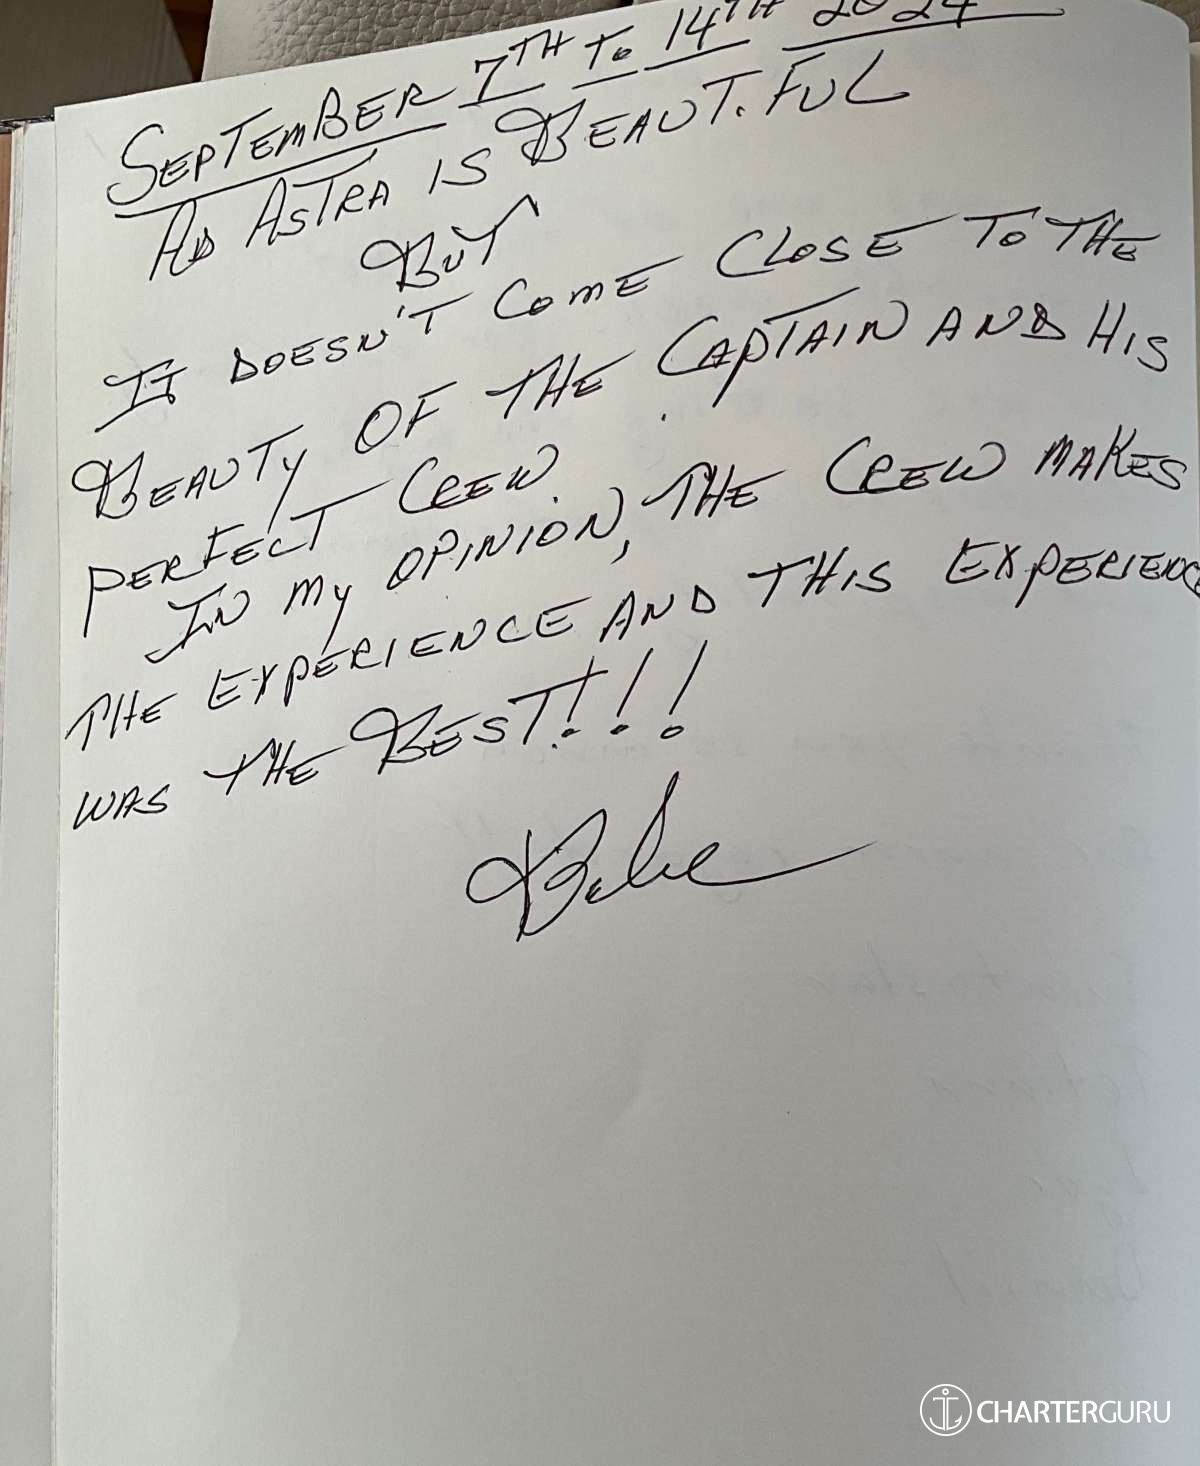 SEPTEMBER 7TH TO 14TH 2024
AD ASTRA IS BEAUTIFUL
BUT
IT DOESN'T COME CLOSE TO THE
BEAUTY OF THE CAPTAIN AND HIS
PERFECT CREW.
IN MY OPINION, THE CREW MAKES
THE EXPERIENCE AND THIS EXPERIENCE
WAS THE BEST!!!
CHARTERGURU